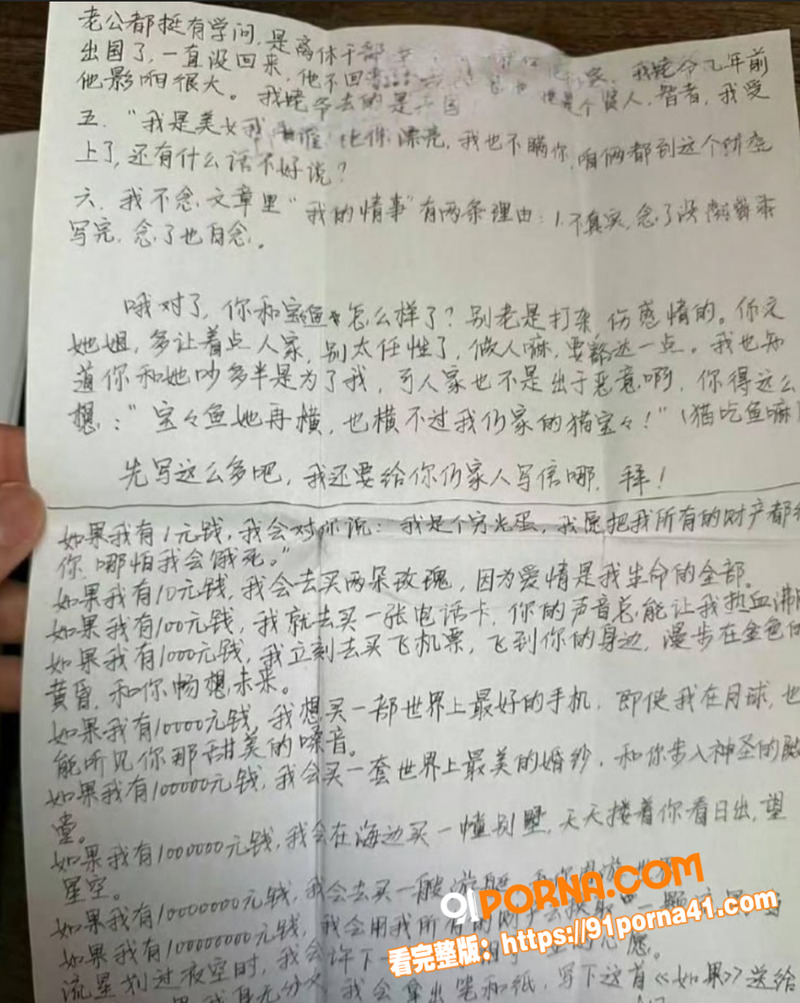 老公都挺有学问，是离休干部
出国了，一直没回来，他不回 我姥爷几年前
他影响很大。我姥爷去的是 智者，我受
五．“我是美女我 比你漂亮，我也不瞒你，咱俩都到这个
上了，还有什么话不好说？
六．我不念文章里“我的情事”有两条理由：1.不真实，念了没
写完，念了也白念。
哦对了，你和宝鱼怎么样了？别老是打架，伤感情的。你是
她姐，多让着点人家，别太任性了，做人嘛，要豁达一点。我也知
道你和她吵多半是为了我，可人家也不是出于恶意啊，你得这么
想：“宝々鱼她再横，也横不过我们家的猫宝々！”（猫吃鱼嘛）
先写这么多吧，我还要给你们家人写信哪，拜！
如果我有1元钱，我会对你说：我是个穷光蛋，我愿把我所有的财产都给
你 哪怕我会饿死。”
如果我有10元钱，我会去买两朵玫瑰，因为爱情是我生命的全部。
如果我有100元钱，我就去买一张电话卡，你的声音总能让我热血沸
如果我有1000元钱，我立刻去买飞机票，飞到你的身边，漫步在金色的
黄昏，和你畅想未来。
如果我有10000元钱，我想买一部世界上最好的手机，即使我在月球，也
能听见你那甜美的嗓音。
如果我有100000元钱，我会买一套世界上最美的婚纱，和你步入神圣的
堂。
如果我有1000000元钱，我会在海边买一幢别墅，天天搂着你看日出，望
星空。
如果我有10000000元钱，我会去买一艘游艇，
如果我有100000000元钱，我会用我所有的财产去换取 一颗
流星划过夜空时，我会许下 心愿。
我身无分文，我会拿出笔和纸，写下这首《如果》送给
91PORNA.COM
看完整版：https://91porna41.com